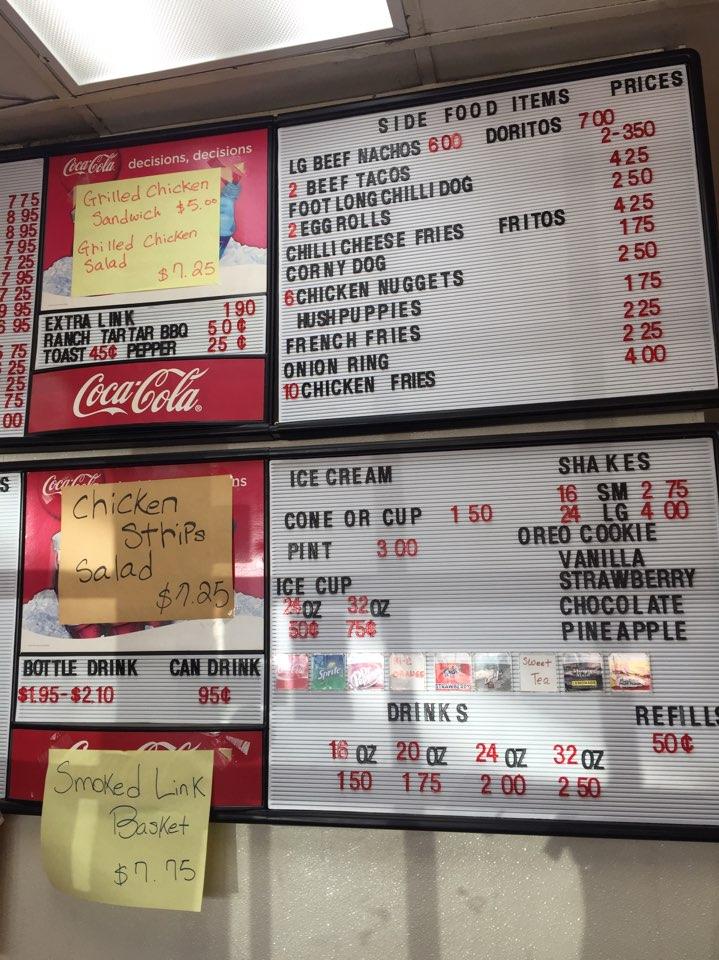 7 75
8 95
8 95
7 95
7 25
7 95
7 25
9 95
6 95
75
25
25
75
00
Coca-Cola decisions, decisions
Grilled Chicken
Sandwich $5.00
Grilled Chicken
Salad
$7.25
EXTRA LINK 1 90
RANCH TARTAR BBQ 50¢
TOAST 45¢ PEPPER 25¢
Coca-Cola
SIDE FOOD ITEMS PRICES
LG BEEF NACHOS 6 00 DORITOS 7 00
2 BEEF TACOS 2-3 50
FOOT LONG CHILLI DOG 4 25
2 EGG ROLLS 2 50
CHILLI CHEESE FRIES FRITOS 4 25
CORNY DOG 1 75
6 CHICKEN NUGGETS 2 50
HUSHPUPPIES 1 75
FRENCH FRIES 2 25
ONION RING 2 25
10 CHICKEN FRIES 4 00
S
Coca-Cola ns
Chicken
Strips
Salad
$7.25
BOTTLE DRINK CAN DRINK
$1.95-$2.10 95¢
Smoked Link
Basket
$7.75
ICE CREAM
CONE OR CUP 1 50
PINT 3 00
ICE CUP
24OZ 32OZ
50¢ 75¢
SHAKES
16 SM 2 75
24 LG 4 00
OREO COOKIE
VANILLA
STRAWBERRY
CHOCOLATE
PINEAPPLE
Sprite Dr Pepper HI-C ORANGE STRAWBERRY Sweet Tea Minute Maid LEMONADE
DRINKS REFILLS
16 OZ 20 OZ 24 OZ 32 OZ 50¢
1 50 1 75 2 00 2 50